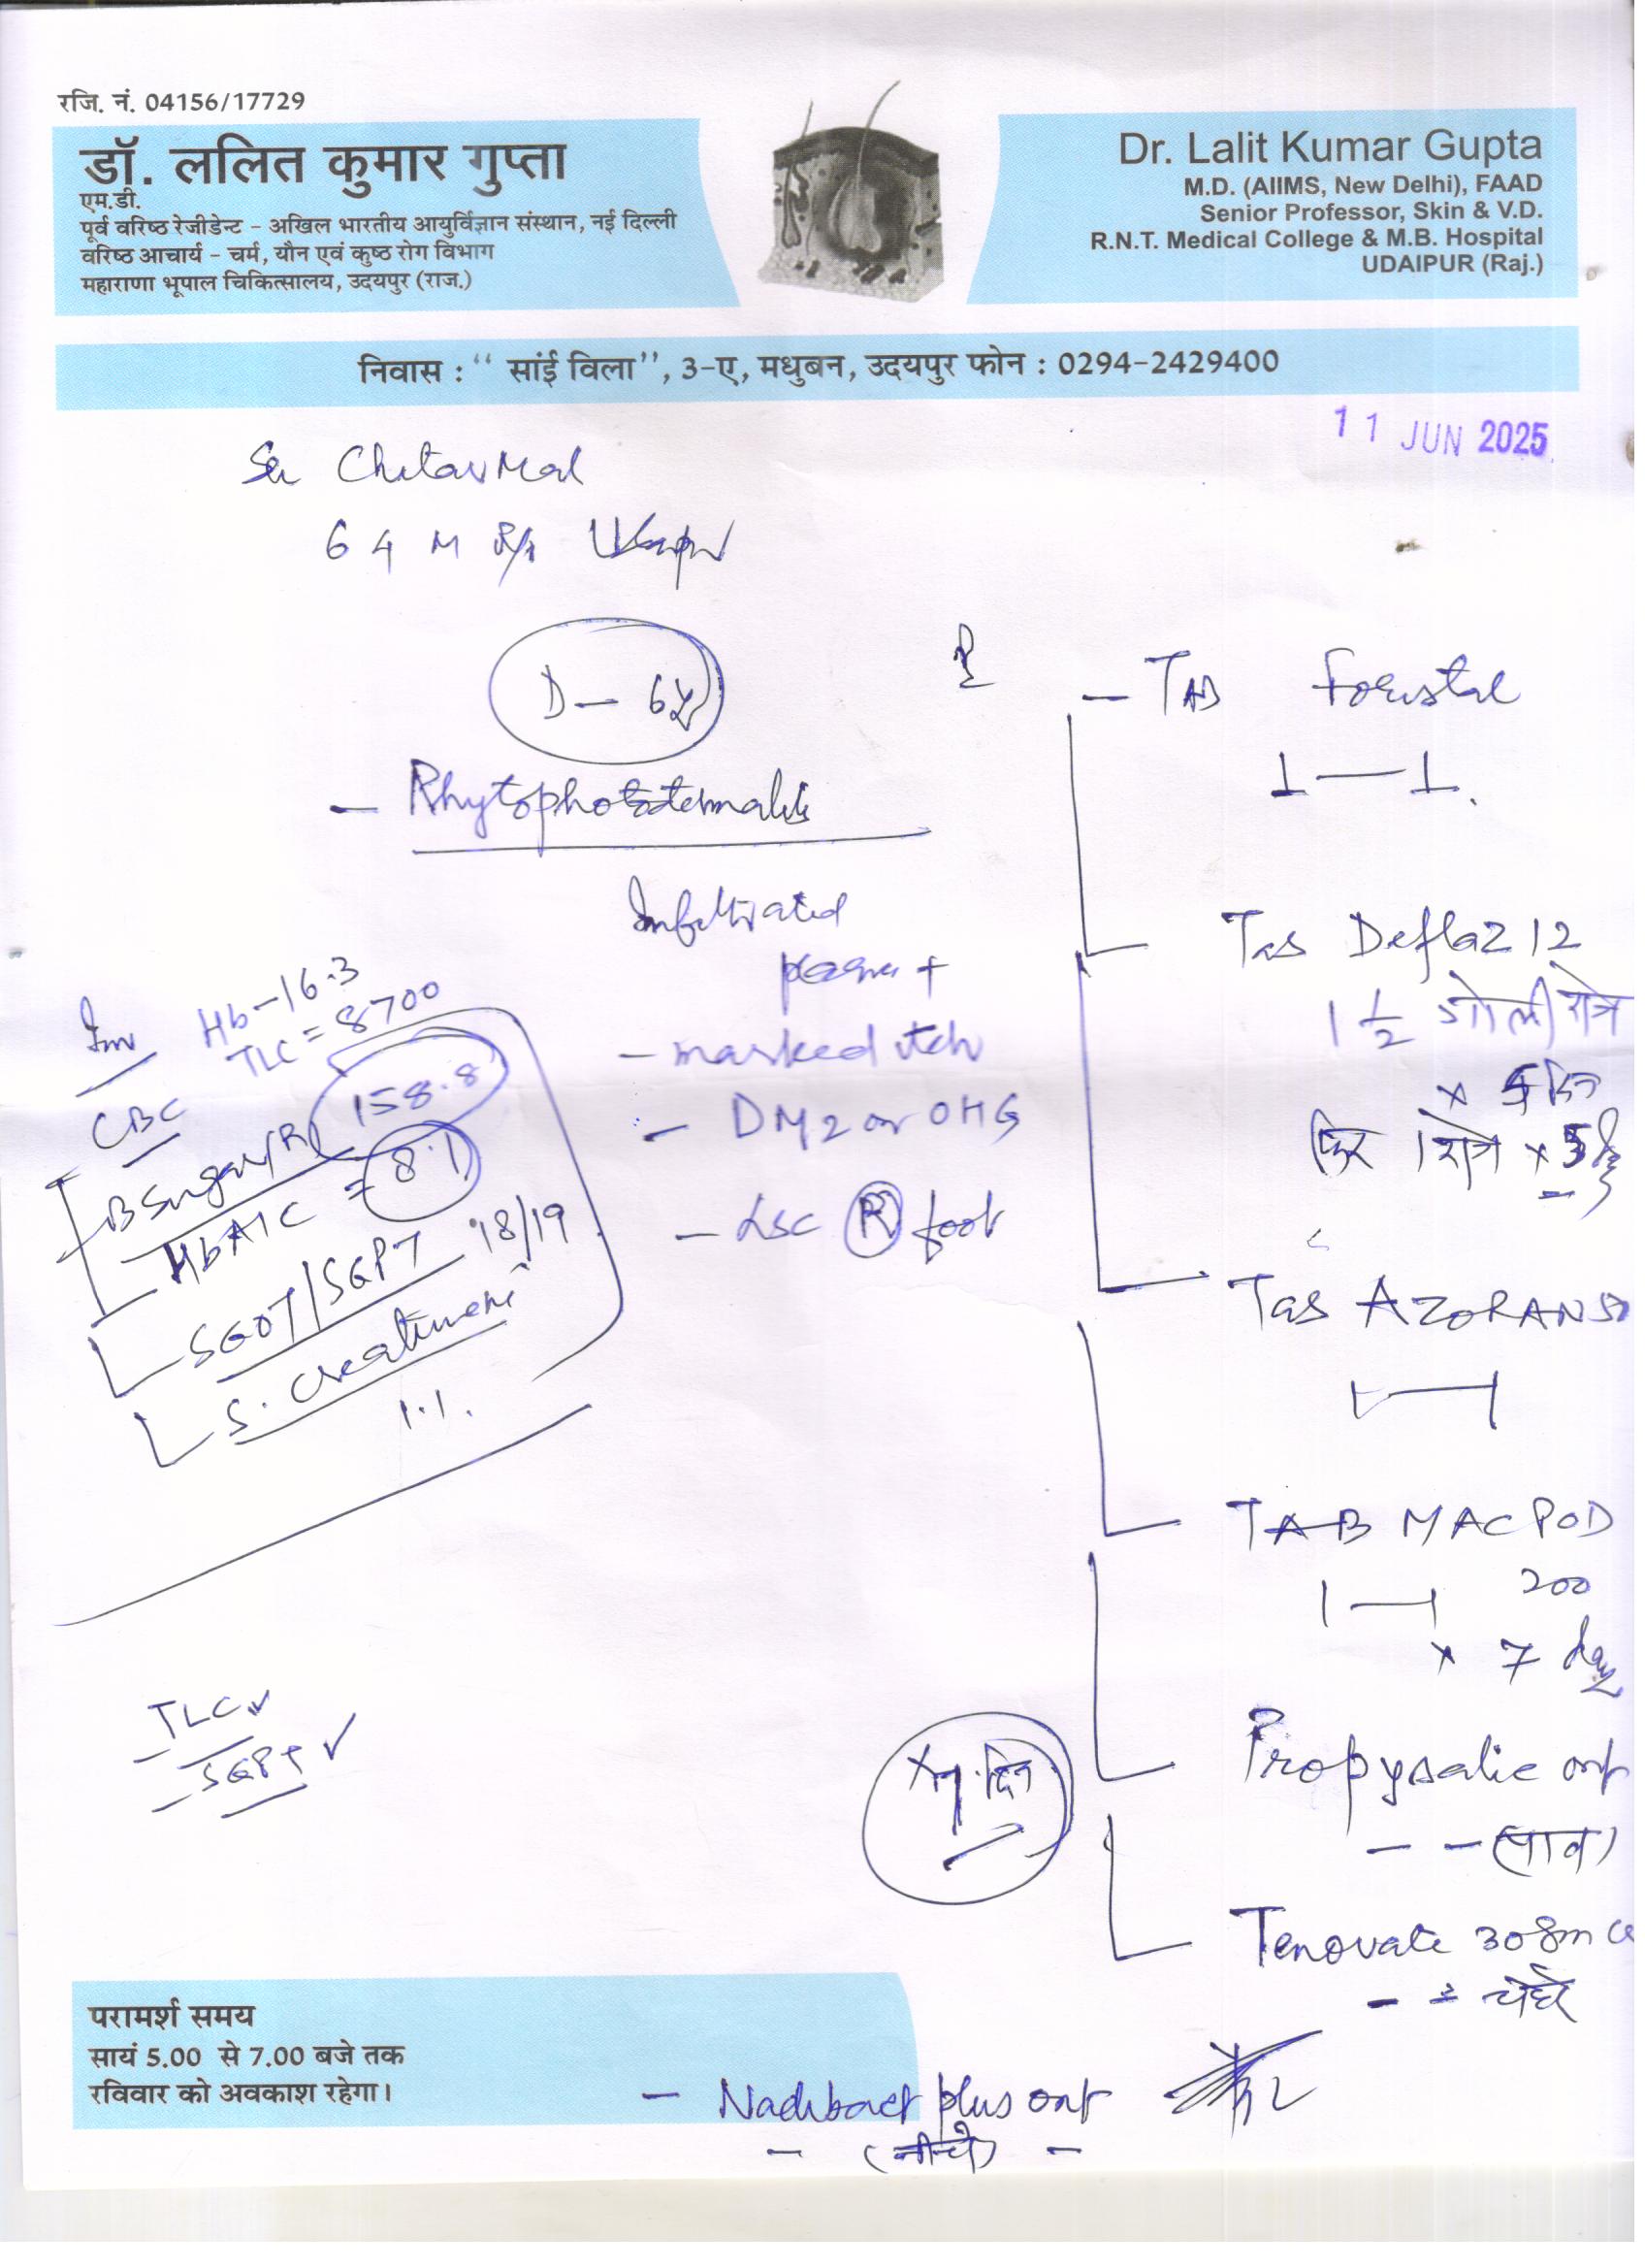 रजि. नं. 04156/17729
डॉ. ललित कुमार गुप्ता
एम.डी.
पूर्व वरिष्ठ रेजीडेन्ट - अखिल भारतीय आयुर्विज्ञान संस्थान, नई दिल्ली
वरिष्ठ आचार्य - चर्म, यौन एवं कुष्ठ रोग विभाग
महाराणा भूपाल चिकित्सालय, उदयपुर (राज.)
Dr. Lalit Kumar Gupta
M.D. (AIIMS, New Delhi), FAAD
Senior Professor, Skin & V.D.
R.N.T. Medical College & M.B. Hospital
UDAIPUR (Raj.)
निवास : “ सांई विला”, 3-ए, मधुबन, उदयपुर फोन : 0294-2429400
11 JUN 2025
64 M R/o
D - 6y
Infiltrated
plaques +
- marked itch
- DM2 on OHG
- LSC R foot
Inv
Hb-16.3
TLC = 8700
CBC
B Sugar (R) 158.8
HbA1C = 8.1
SGOT/SGPT 18/19
S. Creatinine
1.1.
TLC ✓
- SGPT ✓
- TAB
1 — 1.
Tab Deflaz 12
1 1/2 गोली रोज
फिर 1 रोज x 5
Tab AZORAN 50
1 — 1
TAB MACPOD
1 — 1 200
x 7 days
Propysalic ont
- - (पांव)
Tenovate 30gm
x 7 दिन
- Nadibact plus ont
- (नीचे) -
परामर्श समय
सायं 5.00 से 7.00 बजे तक
रविवार को अवकाश रहेगा।